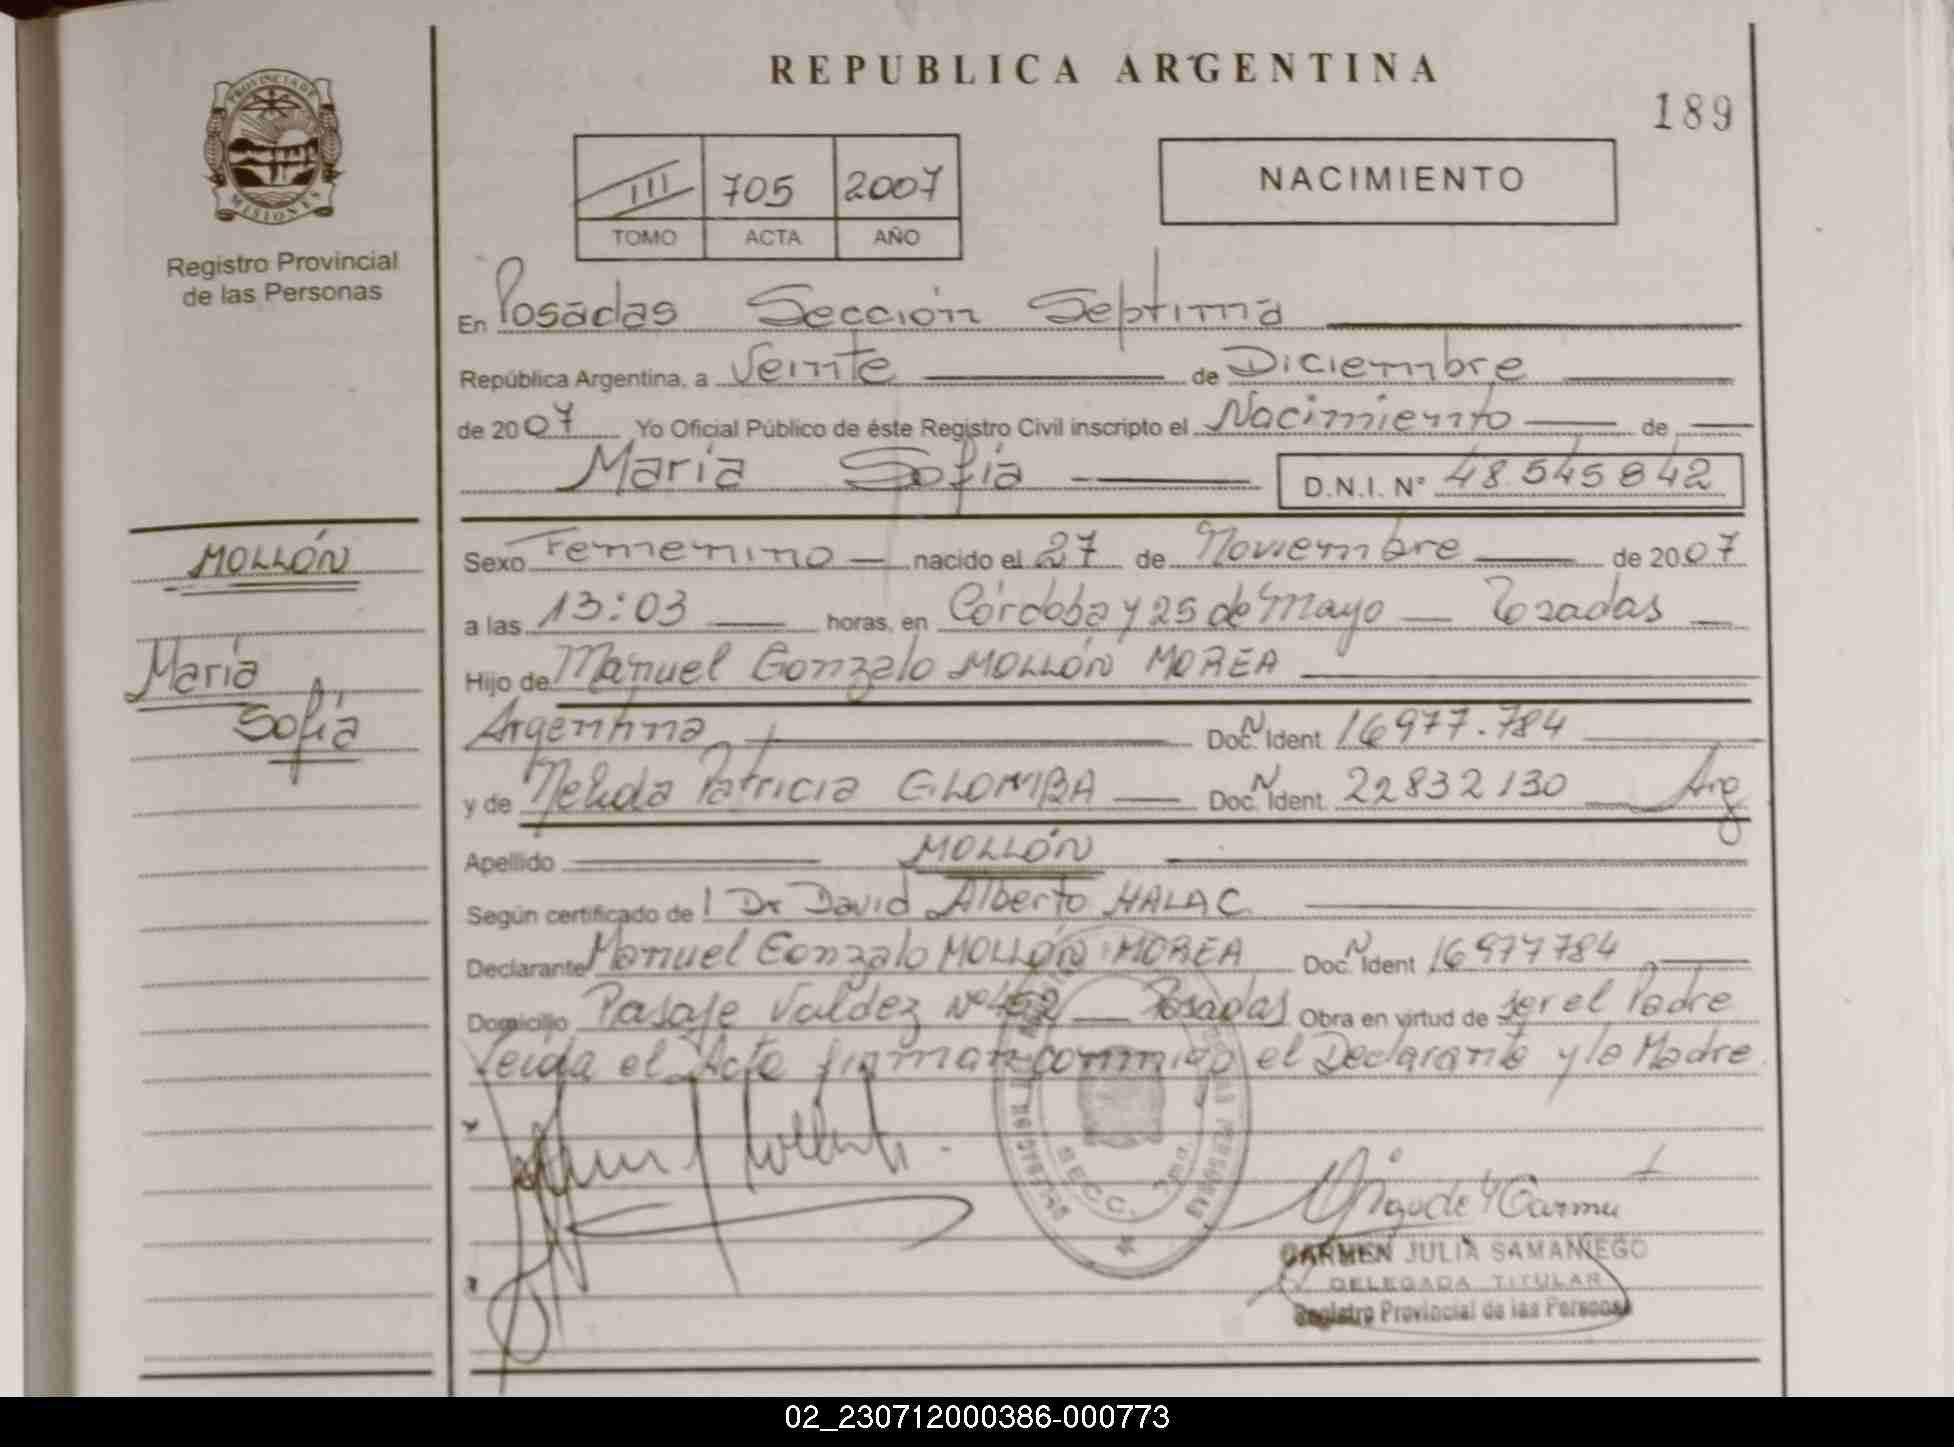 REPUBLICA ARGENTINA
189
PROVINCIA DE
MISIONES
Registro Provincial
de las Personas
III 705 2007
TOMO ACTA AÑO
NACIMIENTO
En Posadas Sección Septima
República Argentina, a Veinte de Diciembre
de 2007 Yo Oficial Público de éste Registro Civil inscripto el Nacimiento de
María Sofía D.N.I. N° 48545842
MOLLÓN
María
Sofía
Sexo Femenino nacido el 27 de Noviembre de 2007
a las 13:03 horas, en Córdoba y 25 de Mayo Posadas
Hijo de Manuel Gonzalo MOLLÓN MOREA
Argentina Doc. N Ident 16977.784
y de Nelida Patricia GLOMBA Doc. N Ident 22832130 Arg
Apellido MOLLÓN
Según certificado de l Dr David Alberto HALAC
Declarante Manuel Gonzalo MOLLÓN MOREA Doc. N Ident 16977784
Domicilio Pasaje Valdez Nº 452 Posadas Obra en virtud de ser el Padre
Leida el Acta firman conmigo el Declarante y la Madre
SECC. 7ma
CARMEN JULIA SAMANIEGO
DELEGADA TITULAR
Registro Provincial de las Personas
02_230712000386-000773